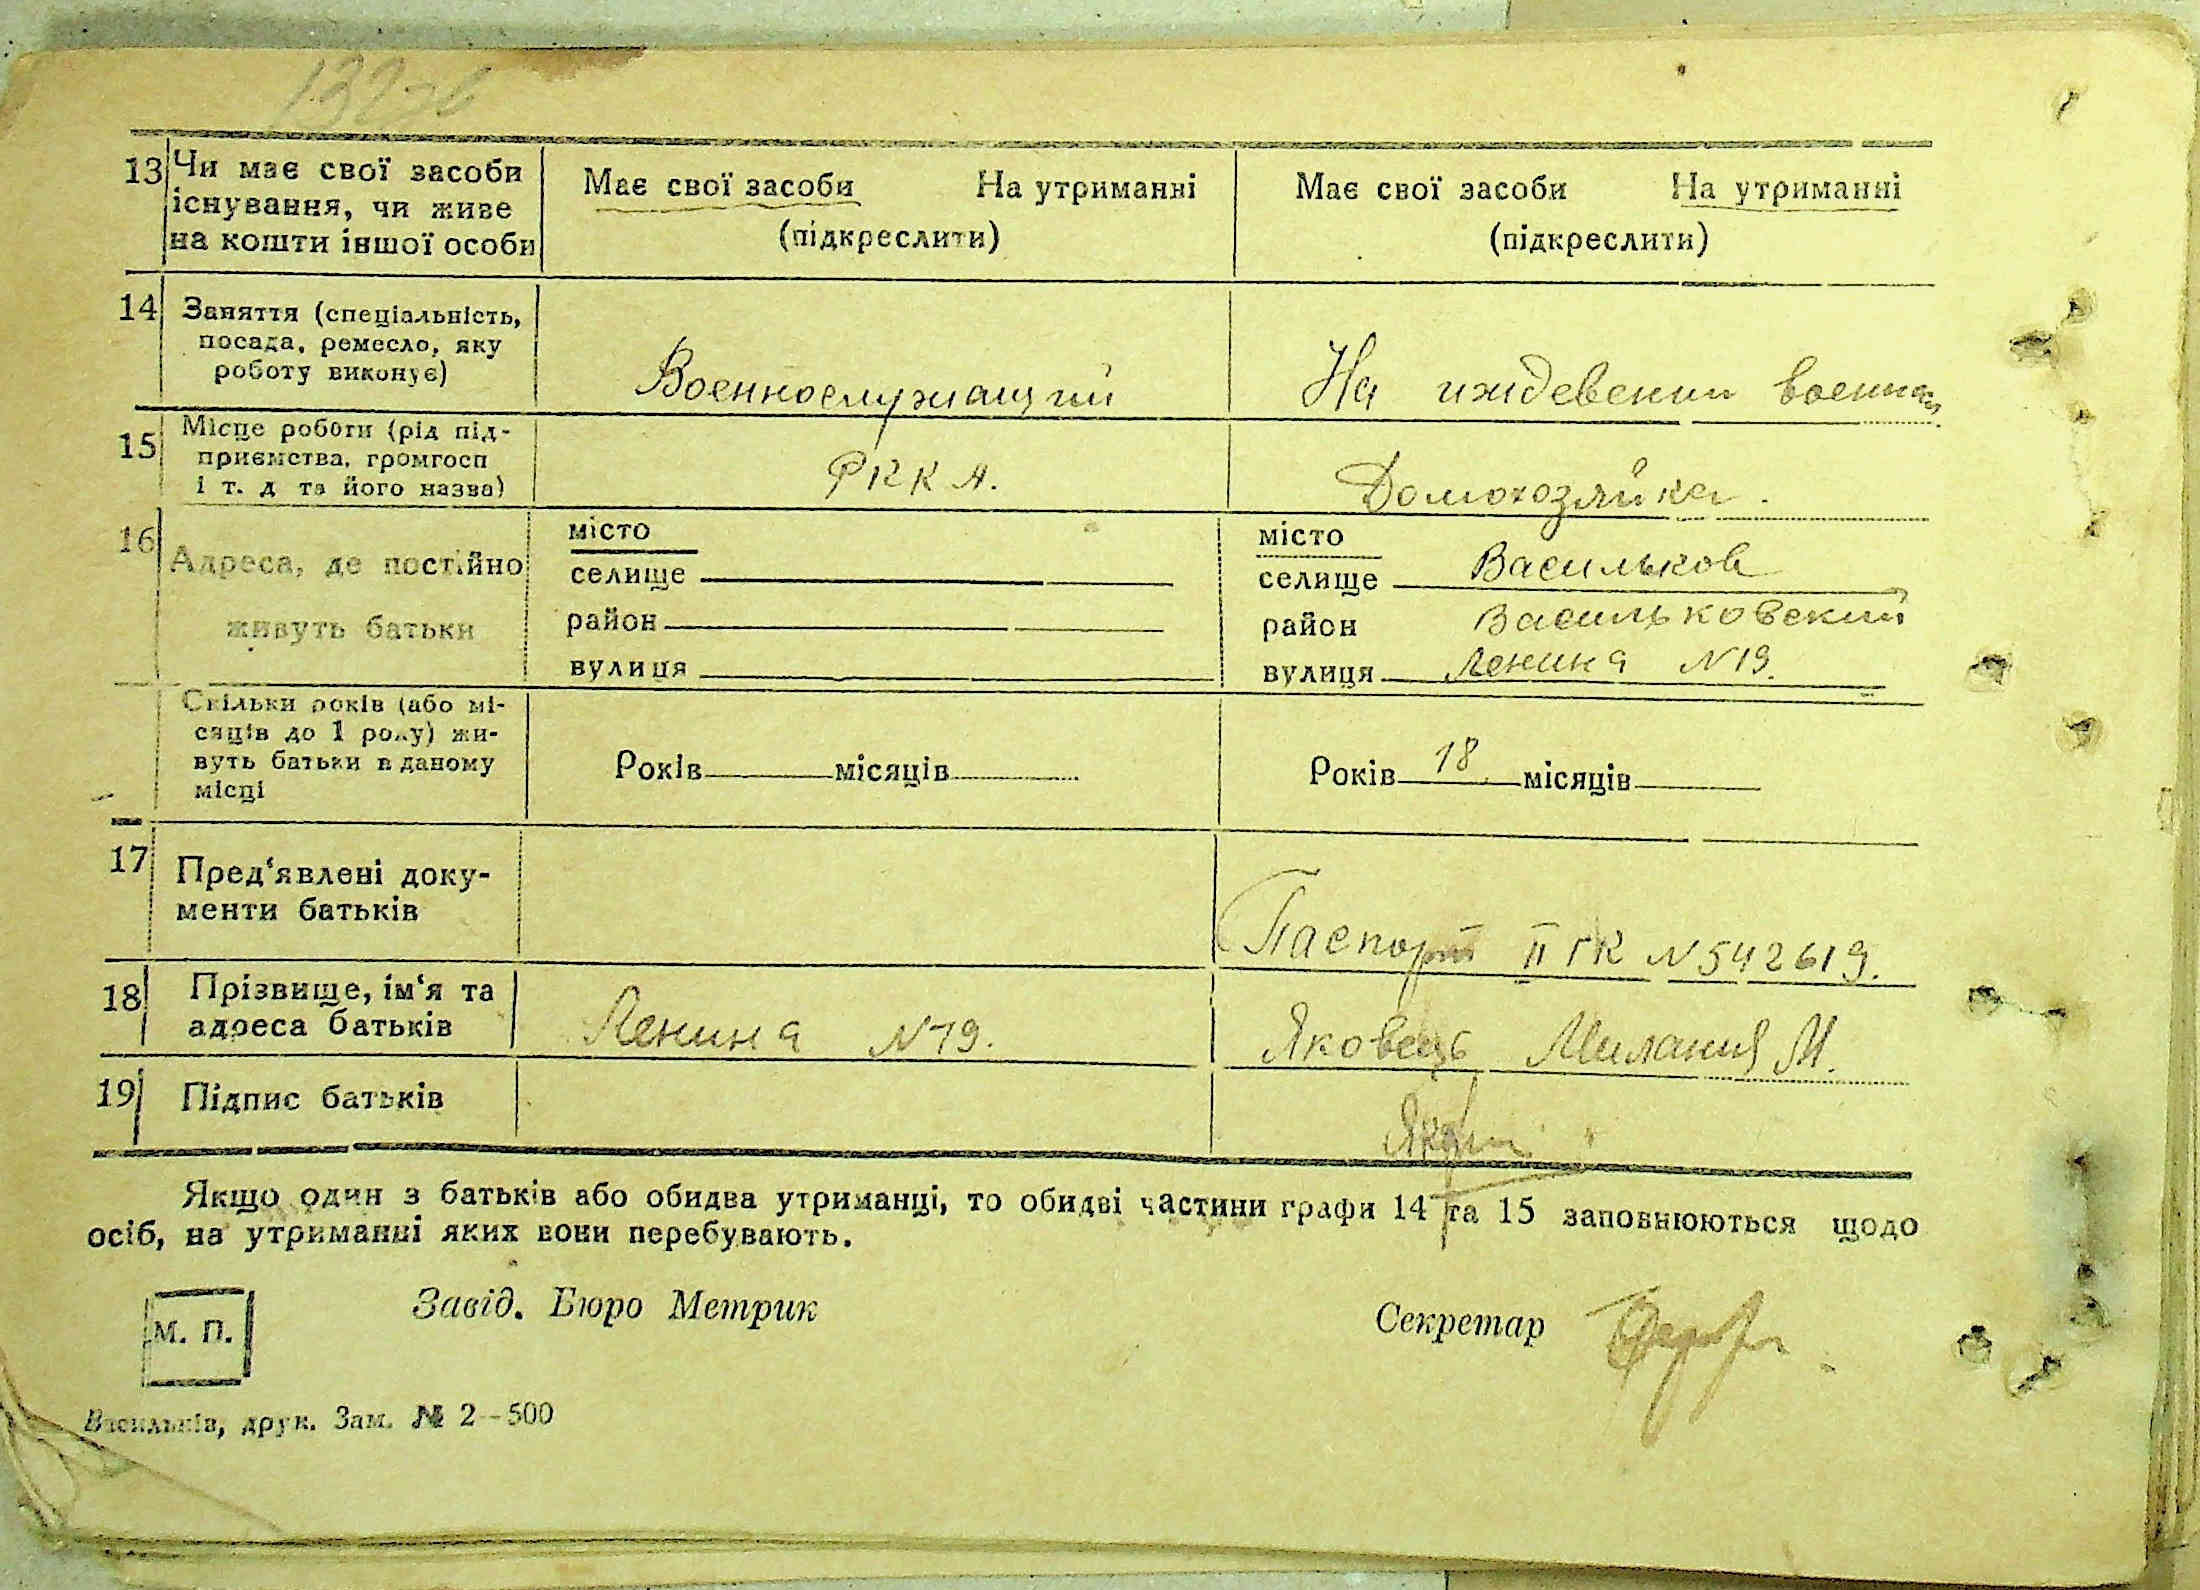 132зв
13 Чи має свої засоби існування, чи живе на кошти іншої особи
Має свої засоби На утриманні
(підкреслити)
Має свої засоби На утриманні
(підкреслити)
14 Заняття (спеціальність,
посада, ремесло, яку
роботу виконує)
Военнослужащий
На иждевении
15 Місце роботи (рід під-
приємства, громгосп
і т. д та його назва)
РККА.
Домохозяйка.
16 Адреса, де постійно
живуть батьки
місто
селище
район
вулиця
місто
селище Васильков
район Васильковский
вулиця Ленина №19.
Скільки років (або мі-
сяців до 1 року) жи-
вуть батьки в даному
місці
Років місяців
Років 18 місяців
17 Пред‘явлені доку-
менти батьків
Паспорт II ГК №542619.
18 Прізвище, ім‘я та
адреса батьків
Ленина №19.
Яковець Милания М.
19 Підпис батьків
Якщо один з батьків або обидва утриманці, то обидві частини графи 14 та 15 заповнюються щодо
осіб, на утриманні яких вони перебувають.
М. П.
Завід. Бюро Метрик
Секретар
Васильків, друк. Зам. № 2—500